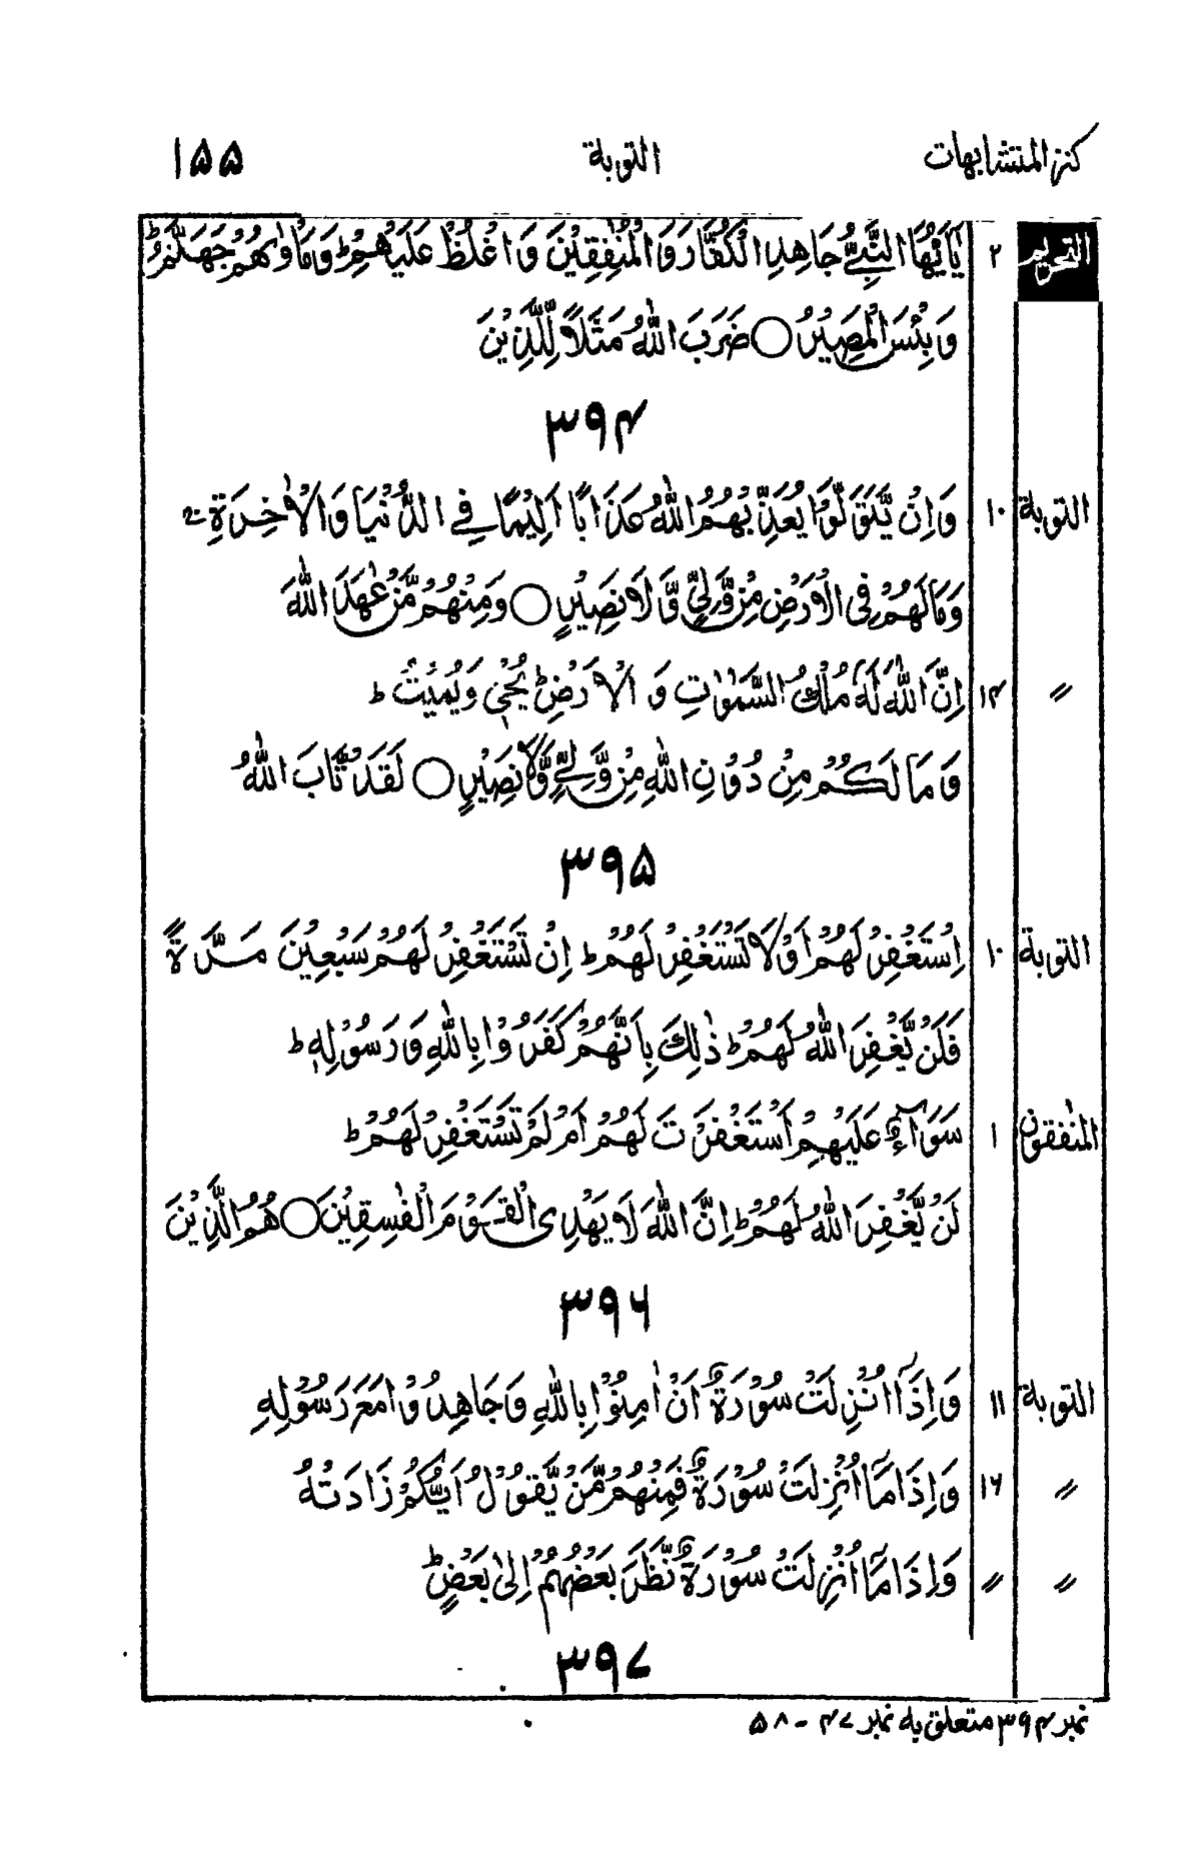 كنز المتشابهات التوبة ١۵۵
التحريم ٢ يٰٓاَيُّهَا النَّبِيُّ جَاهِدِ الْكُفَّارَ وَالْمُنٰفِقِيْنَ وَاغْلُظْ عَلَيْهِمْ ؕ وَمَاْوٰىهُمْ جَهَنَّمُ ؕ
وَبِئْسَ الْمَصِيْرُ ○ ضَرَبَ اللّٰهُ مَثَلًا لِّلَّذِيْنَ
٣٩۴
التوبة ١٠ وَاِنْ يَّتَوَلَّوْا يُعَذِّبْهُمُ اللّٰهُ عَذَابًا اَلِيْمًا فِي الدُّنْيَا وَالْاٰخِرَةِ ۚ
وَمَا لَهُمْ فِي الْاَرْضِ مِنْ وَّلِيٍّ وَّلَا نَصِيْرٍ ○ وَمِنْهُمْ مَّنْ عٰهَدَ اللّٰهَ
〃 ١۴ اِنَّ اللّٰهَ لَهٗ مُلْكُ السَّمٰوٰتِ وَ الْاَرْضِ ؕ يُحْيٖ وَيُمِيْتُ ؕ
وَمَا لَكُمْ مِنْ دُوْنِ اللّٰهِ مِنْ وَّلِيٍّ وَّلَا نَصِيْرٍ ○ لَقَدْ تَّابَ اللّٰهُ
٣٩۵
التوبة ١٠ اِسْتَغْفِرْ لَهُمْ اَوْ لَا تَسْتَغْفِرْ لَهُمْ ؕ اِنْ تَسْتَغْفِرْ لَهُمْ سَبْعِيْنَ مَرَّةً
فَلَنْ يَّغْفِرَ اللّٰهُ لَهُمْ ؕ ذٰلِكَ بِاَنَّهُمْ كَفَرُوْا بِاللّٰهِ وَرَسُوْلِهٖ ؕ
المنٰفقون ١ سَوَآءٌ عَلَيْهِمْ اَسْتَغْفَرْتَ لَهُمْ اَمْ لَمْ تَسْتَغْفِرْ لَهُمْ ؕ
لَنْ يَّغْفِرَ اللّٰهُ لَهُمْ ؕ اِنَّ اللّٰهَ لَا يَهْدِى الْقَوْمَ الْفٰسِقِيْنَ ○ هُمُ الَّذِيْنَ
٣٩۶
التوبة ١١ وَاِذَآ اُنْزِلَتْ سُوْرَةٌ اَنْ اٰمِنُوْا بِاللّٰهِ وَجَاهِدُوْا مَعَ رَسُوْلِهِ
〃 ١۶ وَاِذَا مَآ اُنْزِلَتْ سُوْرَةٌ فَمِنْهُمْ مَّنْ يَّقُوْلُ اَيُّكُمْ زَادَتْهُ
〃 〃 وَاِذَا مَآ اُنْزِلَتْ سُوْرَةٌ نَّظَرَ بَعْضُهُمْ اِلٰى بَعْضٍ ؕ
٣٩٧
نمبر ٣٩۴ متعلق به نمبر ۴٧ - ۵٨